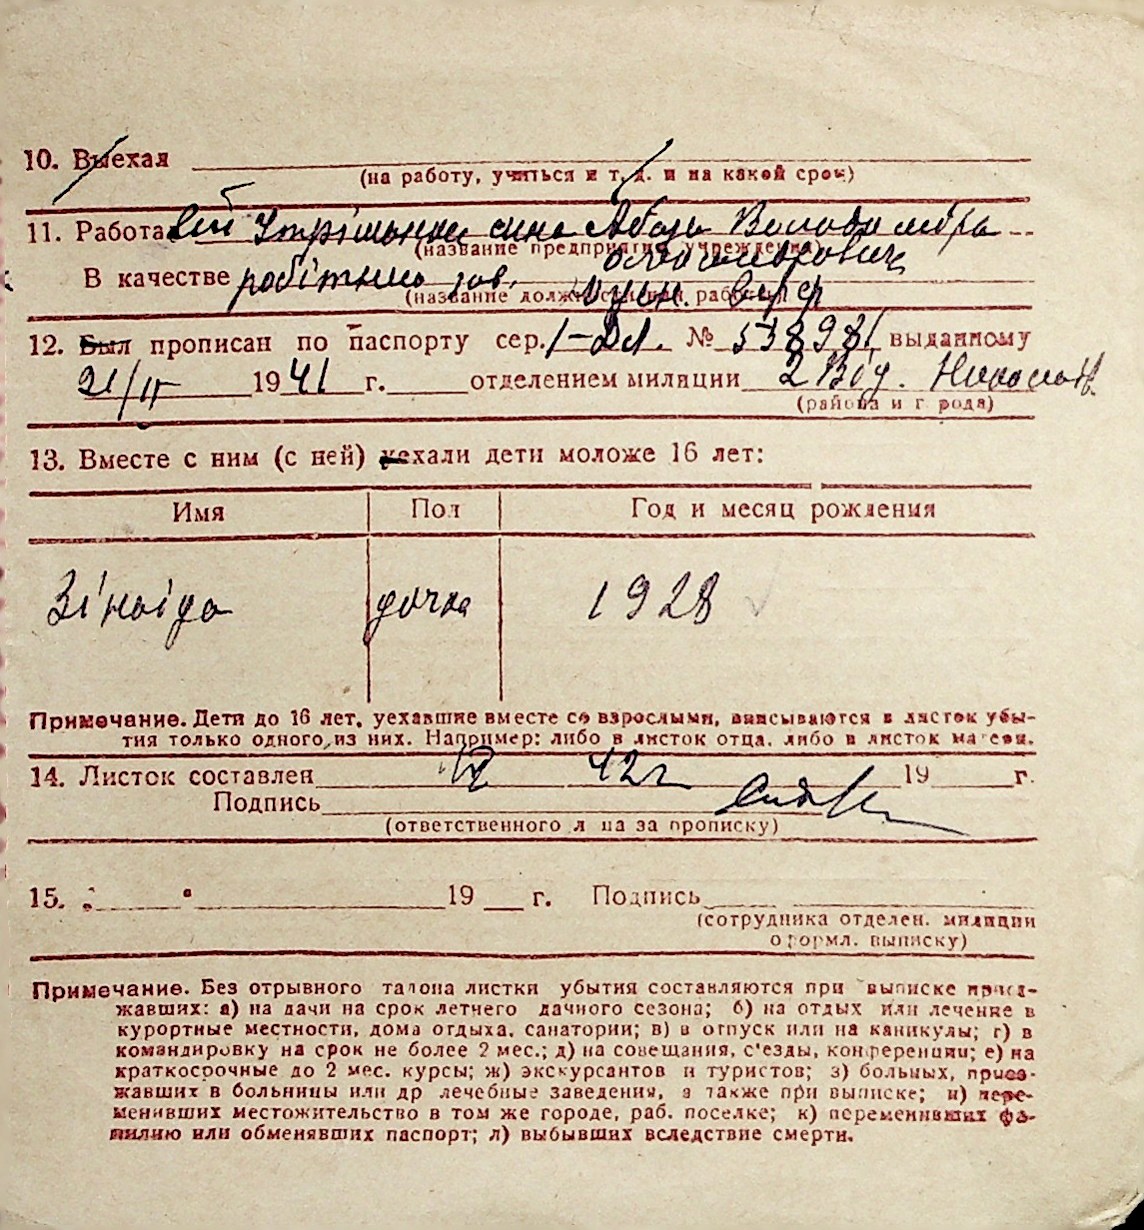 10. Выехал
(на работу, учиться и т. д. и на какой срок)
11. Работа на утриманні сина
(название предприятия, учреждения)
В качестве робітник зав.
12. Был прописан по паспорту сер. № 538981 выданному
21/II 1941 г. отделением милиции 2 Від.
(района и города)
13. Вместе с ним (с ней) уехали дети моложе 16 лет:
Имя Пол Год и месяц рождения
Зінаіда дочка 1928
Примечание. Дети до 16 лет, уехавшие вместе со взрослыми, вписываются в листок убы-
тия только одного из них. Например: либо в листок отца, либо в листок матери.
14. Листок составлен 42 г 19 г.
Подпись
(ответственного л на за прописку)
15. 19 г. Подпись
(сотрудника отделен. милиции
оформл. выписку)
Примечание. Без отрывного талона листки убытия составляются при выписке приез-
жавших: а) на дачи на срок летнего дачного сезона; б) на отдых или лечение в
курортные местности, дома отдыха, санатории; в) в отпуск или на каникулы; г) в
командировку на срок не более 2 мес.; д) на совещания, с'езды, конференции; е) на
краткосрочные до 2 мес. курсы; ж) экскурсантов и туристов; з) больных, приез-
жавших в больницы или др лечебные заведения, а также при выписке; и) пере-
менивших местожительство в том же городе, раб. поселке; к) переменивших фа-
милию или обменявших паспорт; л) выбывших вследствие смерти.